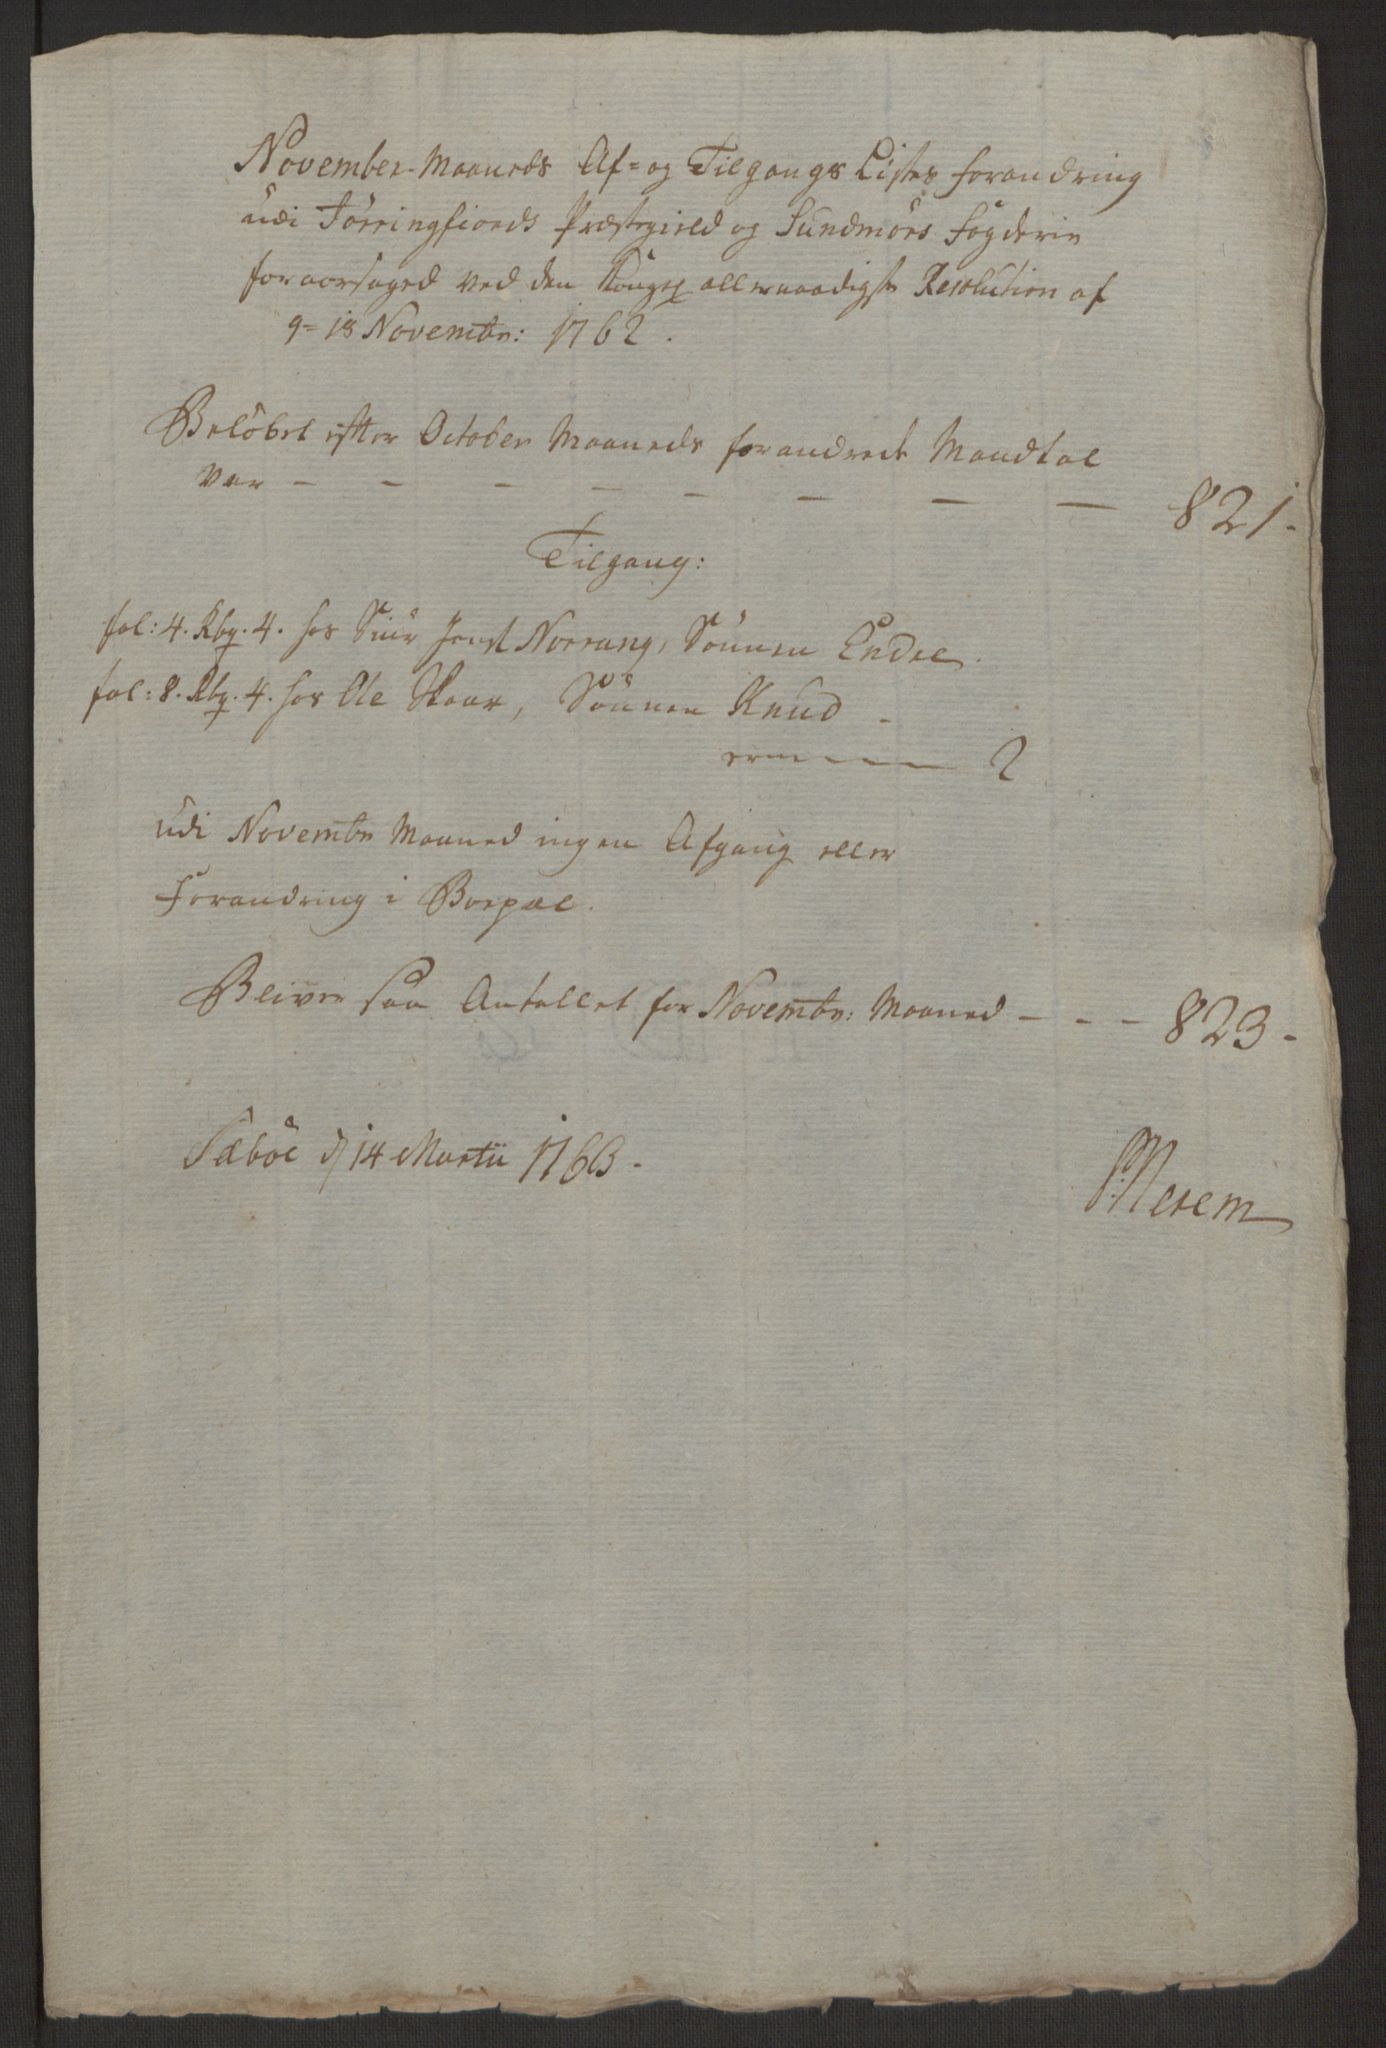 November Maaneds Af= og Tilgangs Listes forandring
udi Jörringfiords Præstegield og Sundmörs Fogderie
foraarsaged ved den Kongel allernaadigste Resolution af
9= 18 Novembr: 1762.
Belöbet efter October Maaneds forandrede Mandtal
var - - - - - - - - 821.
Tilgang:
fol: 4. Rbq. 4. hos Siur Norrang, Sönnen Endre.
fol: 8. Rbq. 4. hos Ole Skaar, Sönnen Knud -
ere - - - - 2
udi Novembr Maaned ingen Afgang eller
Forandring i Boepæl.
Bliver saa Antallet for Novembr: Maaned - - - 823-
Sæböe d 14 Martii 1763.